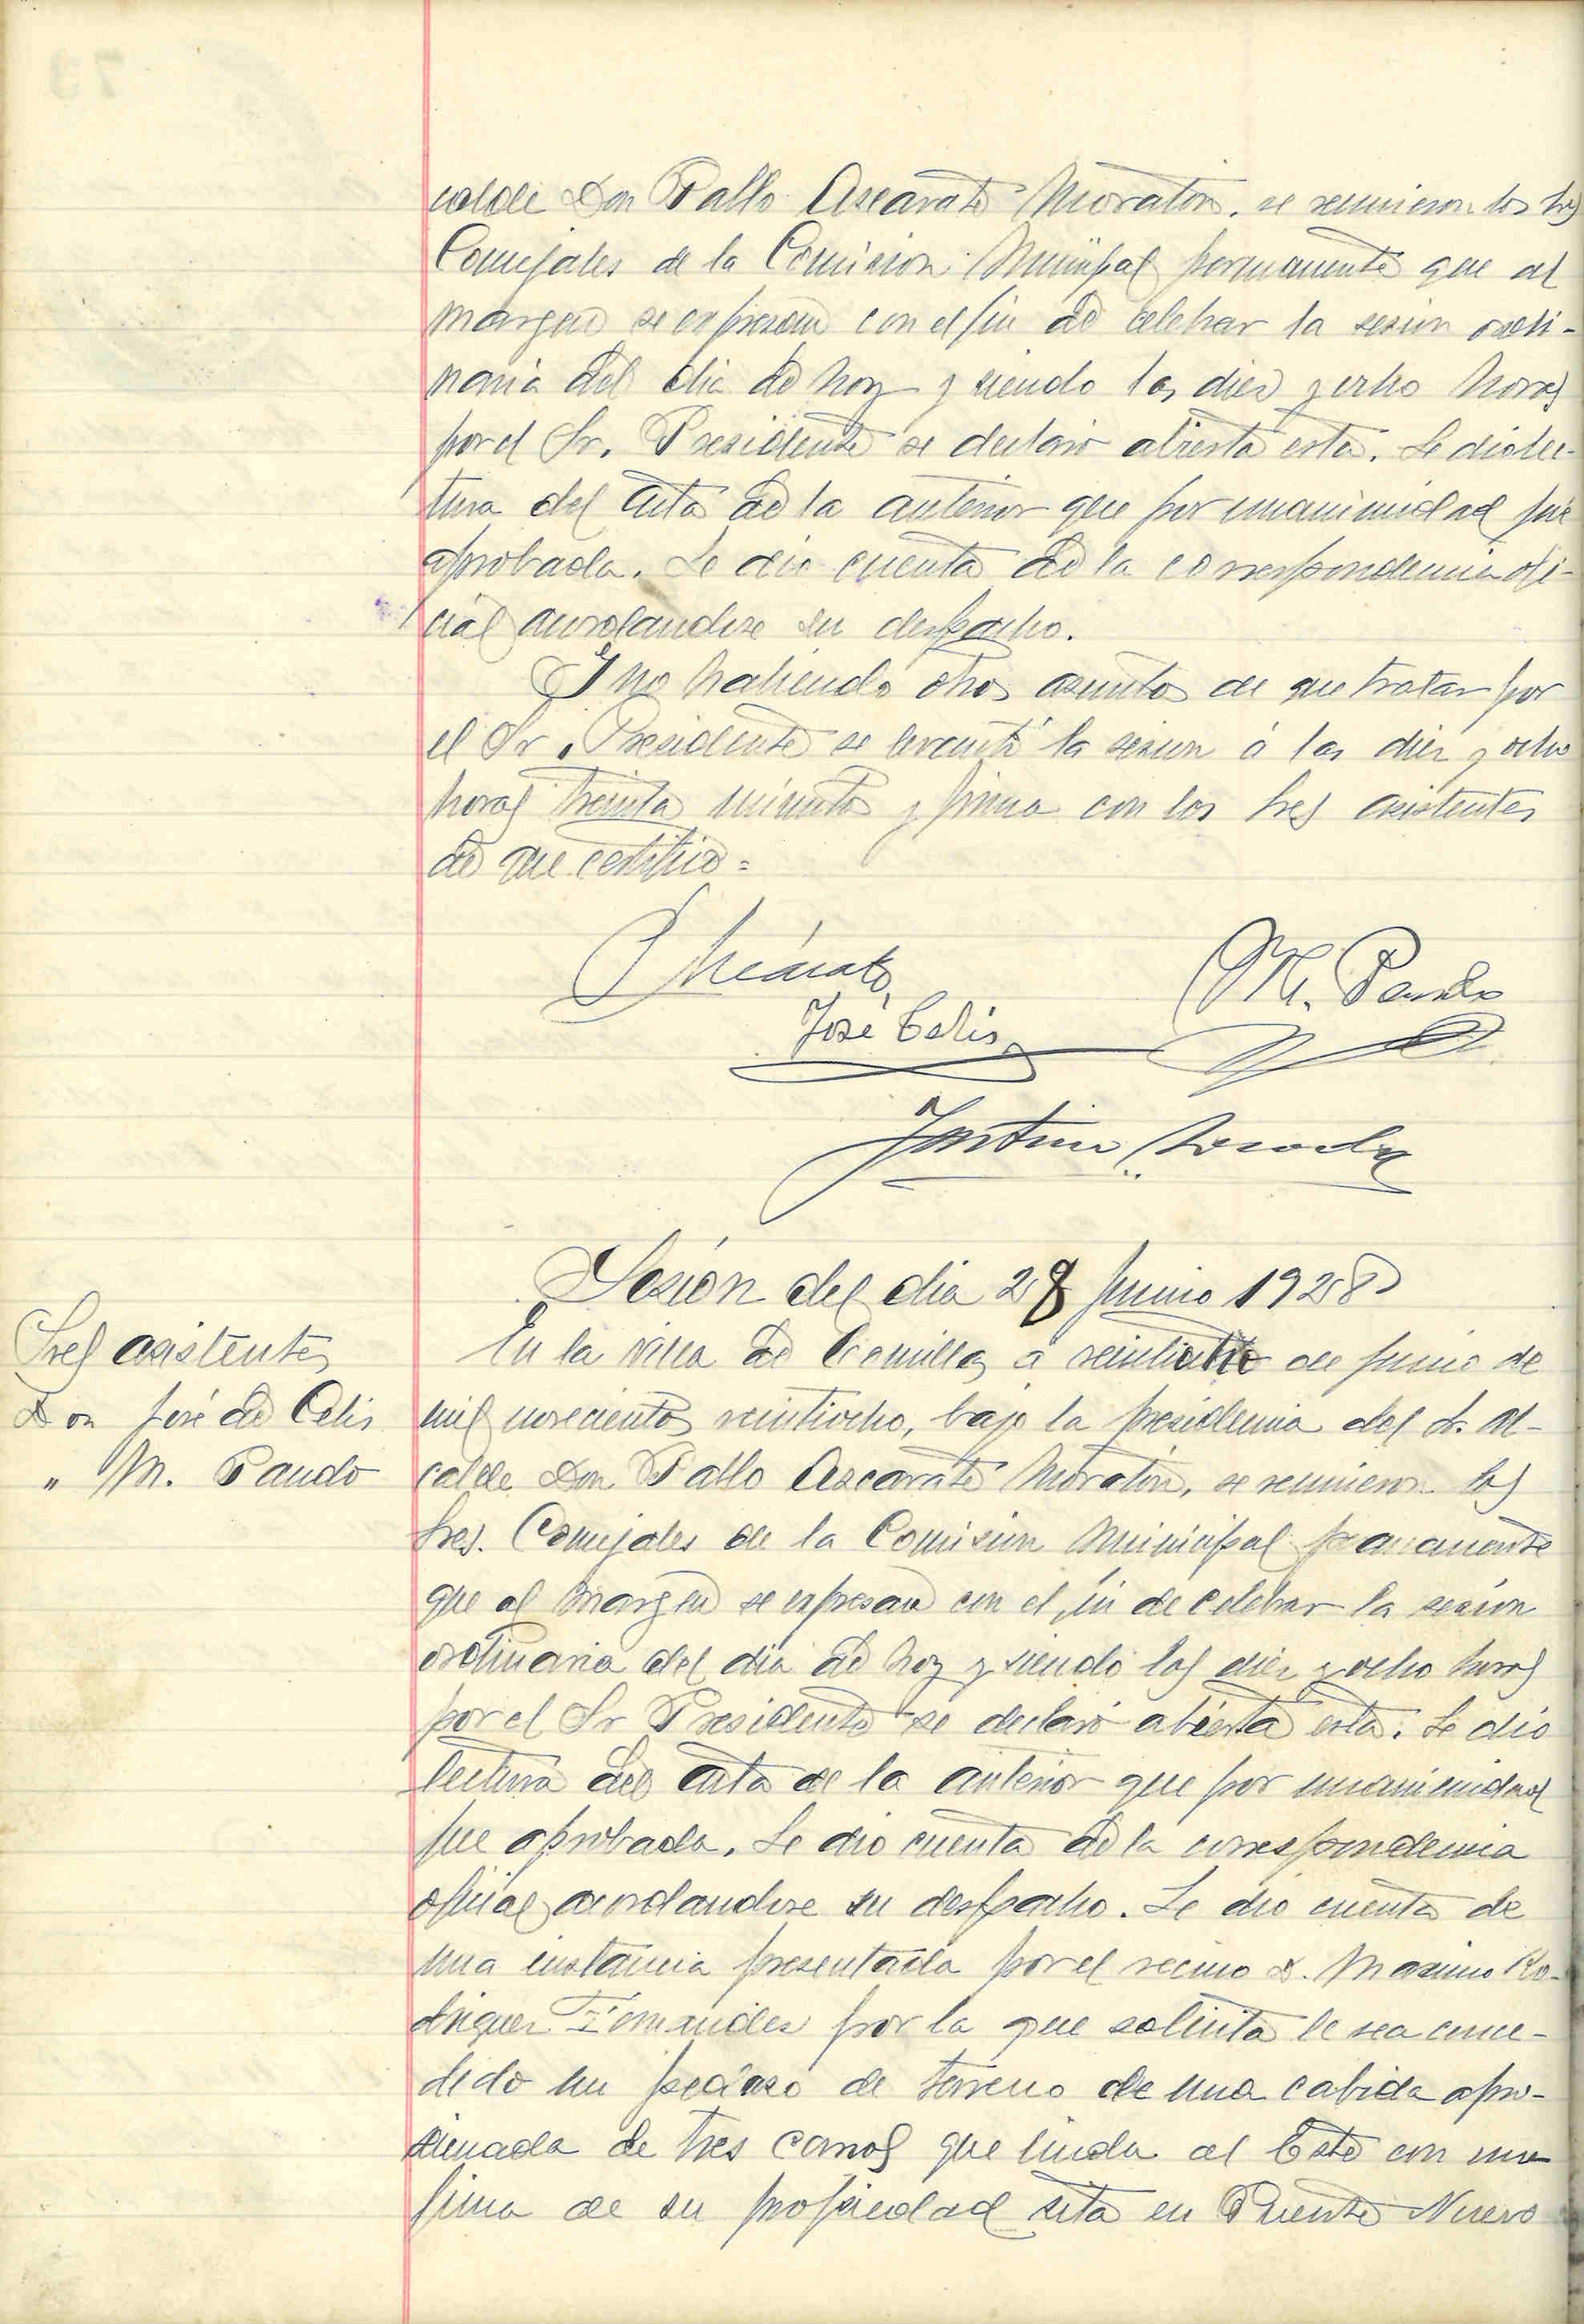 calde Don Pablo Azcarate Moratón, se reunieron los Sres
Concejales de la Comision Municipal permanente que al
margen se expresan con el fin de celebrar la sesion ordi-
naria del dia de hoy y siendo las diez y ocho horas
por el Sr. Presidente se declaró abierta esta. Se dio lec-
tura del acta de la anterior que por unanimidad fue
aprobada. Se dio cuenta de la correspondencia ofi-
cial acordandose su despacho.
Y no habiendo otros asuntos de que tratar por
el Sr. Presidente se levantó la sesion á las diez y ocho
horas treinta minutos y firma con los Sres asistentes
de que certifico =
P Azcárate
M. Pando
José Celis
Sesión del dia 28 Junio 1928
Sres asistentes
Don José de Celis
" M. Pando
En la villa de Comillas a veintiocho de Junio de
mil novecientos veintiocho, bajo la presidencia del Sr. Al-
calde Don Pablo Azcarate Moratón, se reunieron los
Sres. Concejales de la Comision Municipal permanente
que al margen se expresan con el fin de celebrar la sesión
ordinaria del dia de hoy y siendo las diez y ocho horas
por el Sr Presidente se declaró abierta esta. Se dio
lectura del acta de la anterior que por unanimidad
fue aprobada. Se dio cuenta de la correspondencia
oficial acordandose su despacho. Se dio cuenta de
una instancia presentada por el vecino D. Maximo Ro-
driguez Fernandez por la que solicita le sea conce-
dido un pedazo de terreno de una cabida apro-
ximada de tres carros que linda al Este con una
finca de su propiedad sita en Puente Nuevo